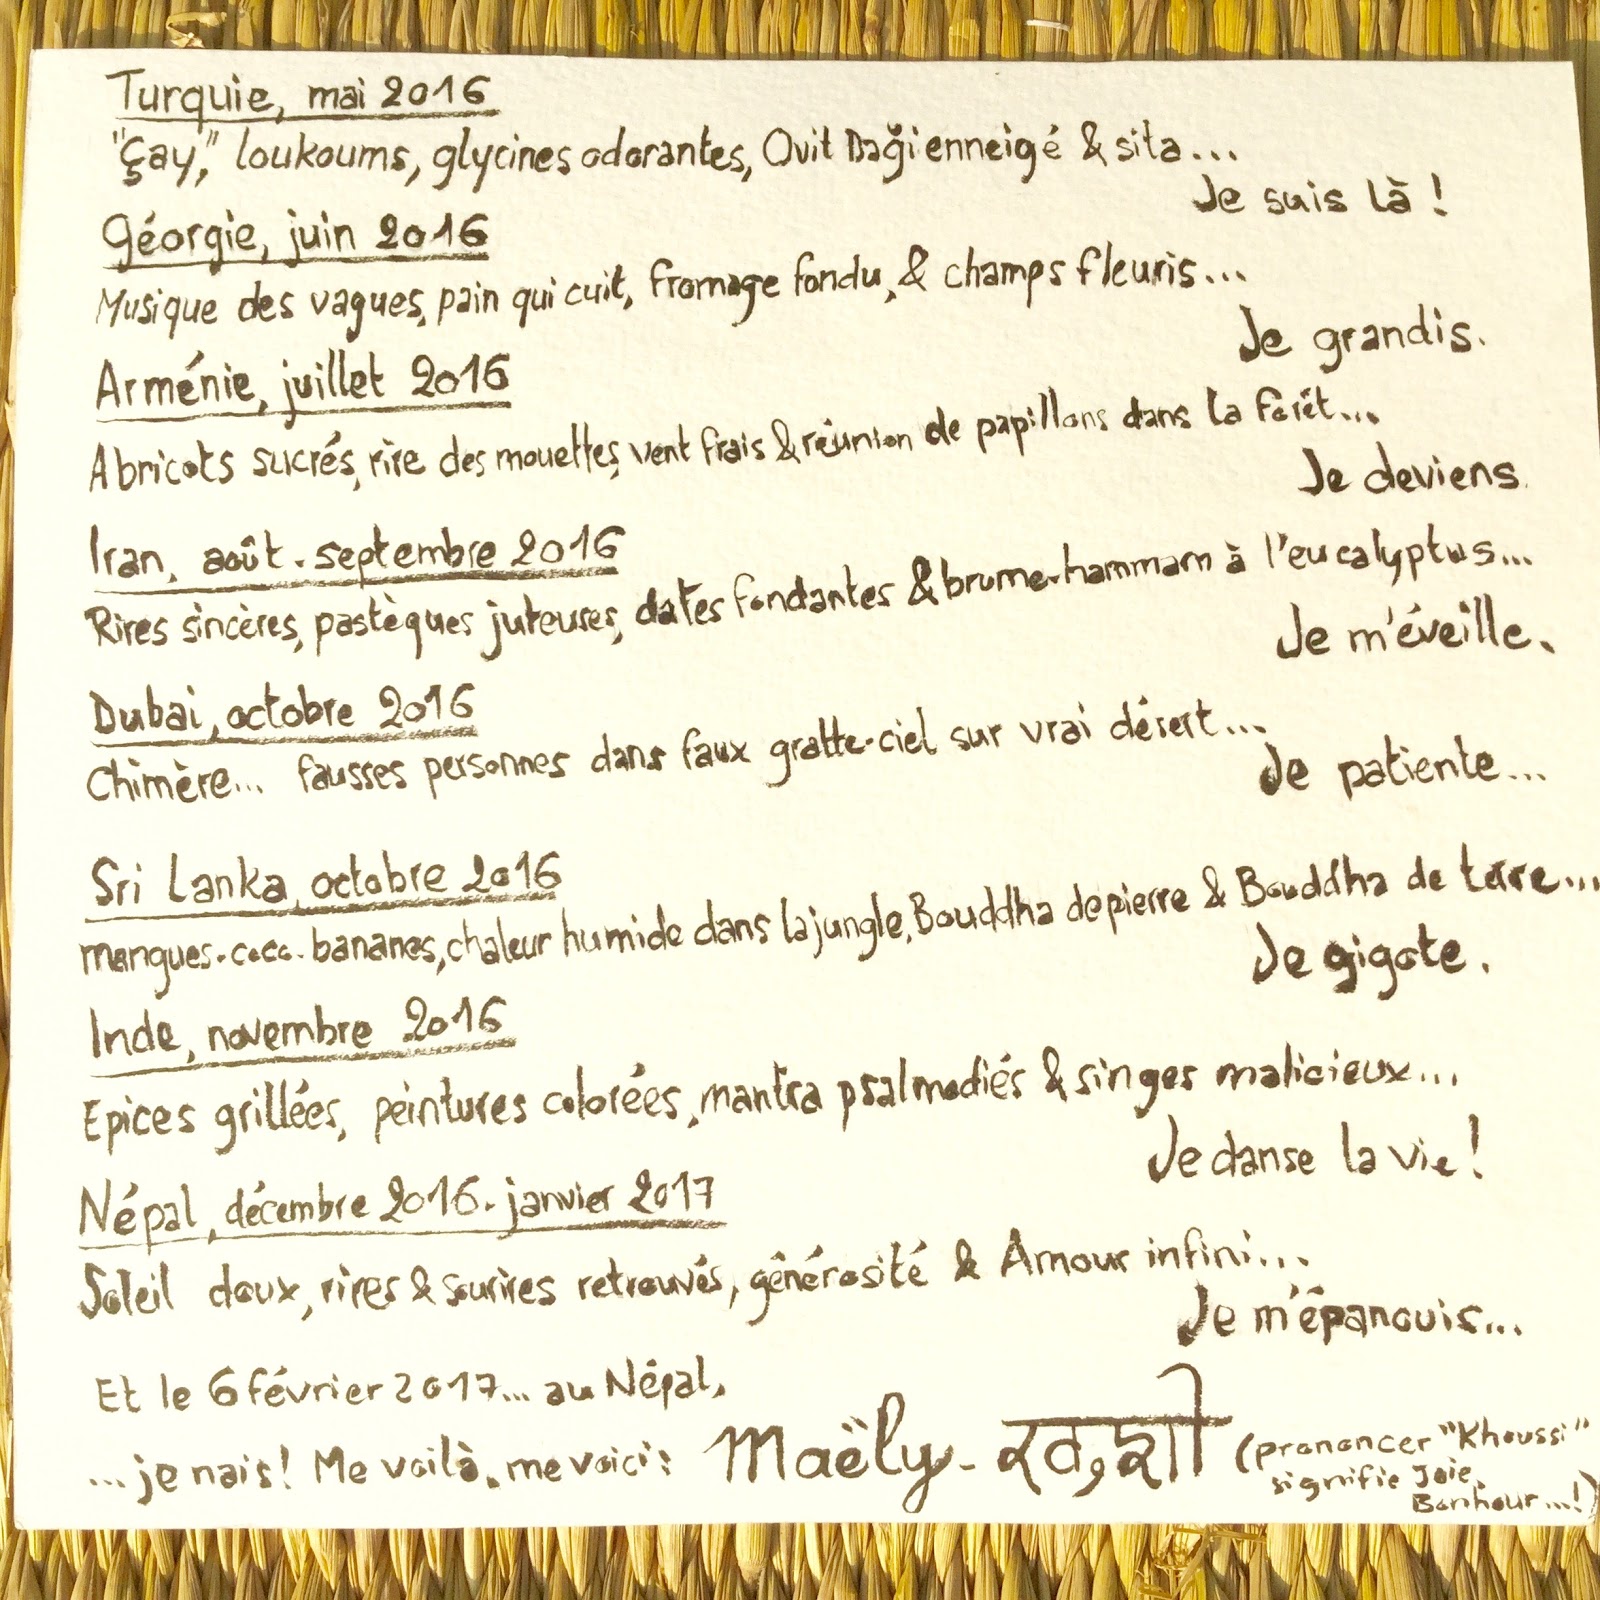 Turquie, mai 2016
"Çay," loukoums, glycines odorantes, Ovit Daği enneigé & sita...
Je suis là !
Géorgie, juin 2016
Musique des vagues, pain qui cuit, fromage fondu, & champs fleuris...
Je grandis.
Arménie, juillet 2016
Abricots sucrés, rire des mouettes, vent frais & réunion de papillons dans la forêt...
Je deviens.
Iran, août-septembre 2016
Rires sincères, pastèques juteuses, dates fondantes & brume-hammam à l'eucalyptus...
Je m'éveille.
Dubai, octobre 2016
Chimère... fausses personnes dans faux gratte-ciel sur vrai désert...
Je patiente...
Sri Lanka, octobre 2016
mangues-coco-bananes, chaleur humide dans la jungle, Bouddha de pierre & Bouddha de terre...
Je gigote.
Inde, novembre 2016
Epices grillées, peintures colorées, mantra psalmodiés & singes malicieux...
Je danse la vie !
Népal, décembre 2016-janvier 2017
Soleil doux, rires & sourires retrouvés, générosité & Amour infini...
Je m'épanouis...
Et le 6 février 2017... au Népal,
...je nais ! Me voilà, me voici : Maëly - खुशी (prononcer "Khoussi"
signifie Joie,
Bonheur...!)